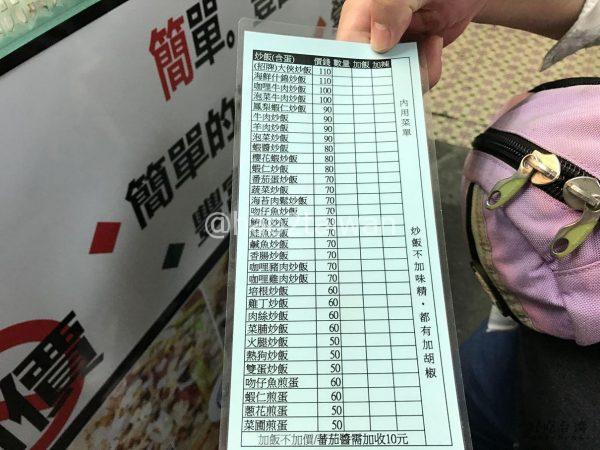 簡單。
簡單的
價
炒飯(含蛋) 價錢 數量 加飯 加辣
(招牌)大俠炒飯 110
海鮮什錦炒飯 110
咖哩牛肉炒飯 100
泡菜牛肉炒飯 100
鳳梨蝦仁炒飯 90
牛肉炒飯 90
羊肉炒飯 90
泡菜炒飯 90
蝦醬炒飯 80
櫻花蝦炒飯 80
蝦仁炒飯 80
番茄蛋炒飯 70
蔬菜炒飯 70
海苔肉鬆炒飯 70
吻仔魚炒飯 70
鮪魚炒飯 70
鮭魚炒飯 70
鹹魚炒飯 70
香腸炒飯 70
咖哩豬肉炒飯 70
咖哩雞肉炒飯 70
培根炒飯 60
雞丁炒飯 60
肉絲炒飯 60
菜脯炒飯 60
火腿炒飯 50
熱狗炒飯 50
雙蛋炒飯 50
吻仔魚煎蛋 60
蝦仁煎蛋 60
蔥花煎蛋 50
菜圃煎蛋 50
加飯不加價/蕃茄醬需加收10元
內用菜單
炒飯不加味精，都有加胡椒